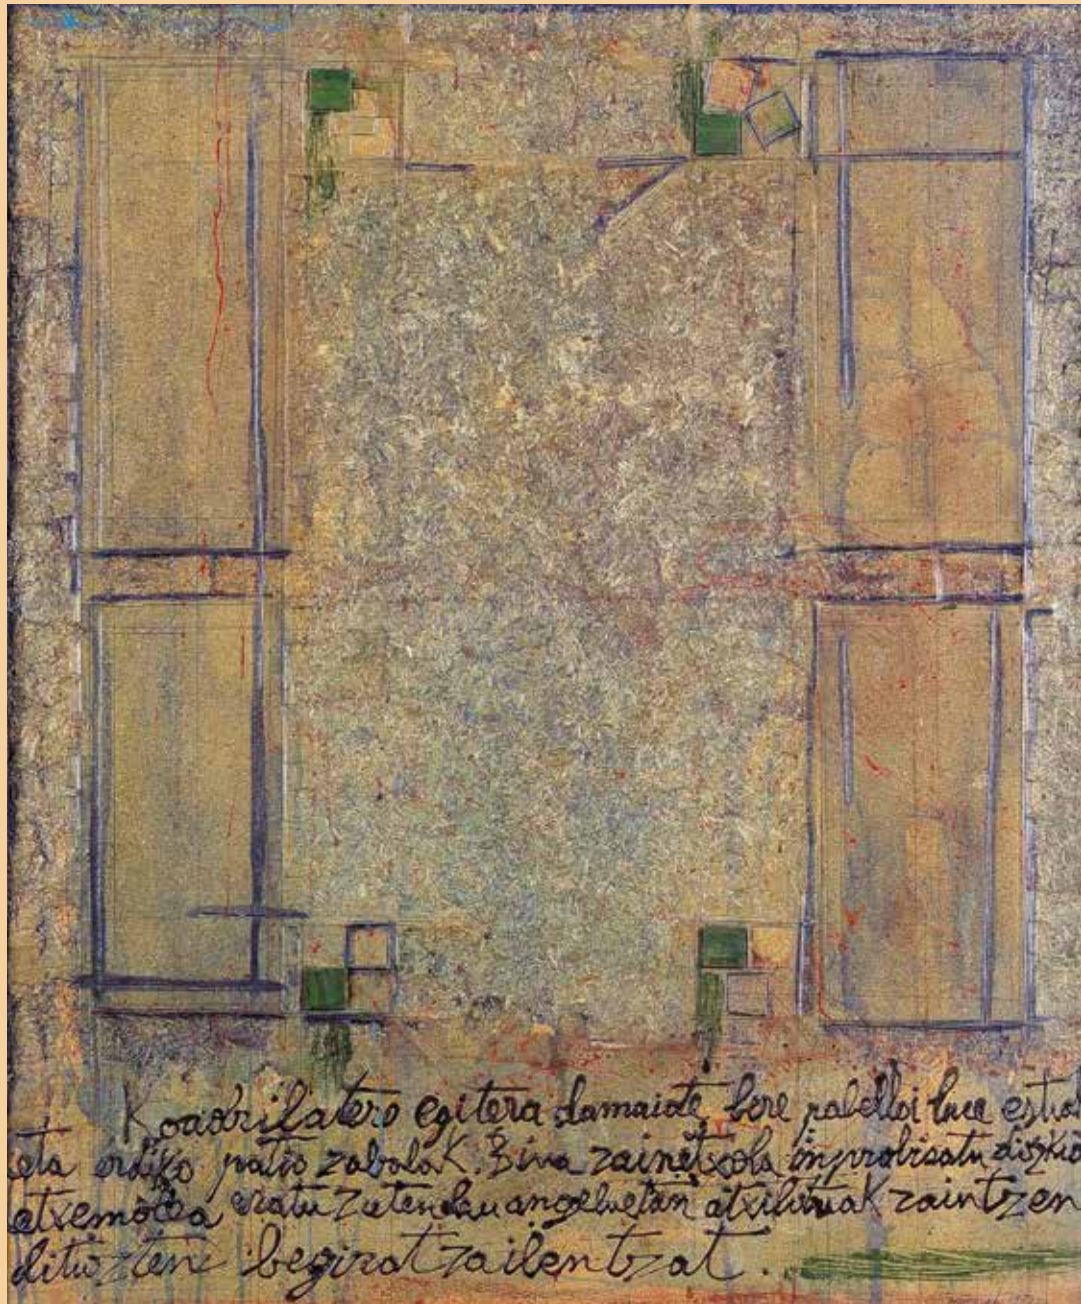 Koadrilatero egitera damaiote bere pabelloi luce estuak
eta erdiko patio zabalak. Bina zainetxola inprobisatu dizkio
etxemordoa eratu zuten lau angeluetan atxilotuak zaintzen
dituzten begiratzailentzat.